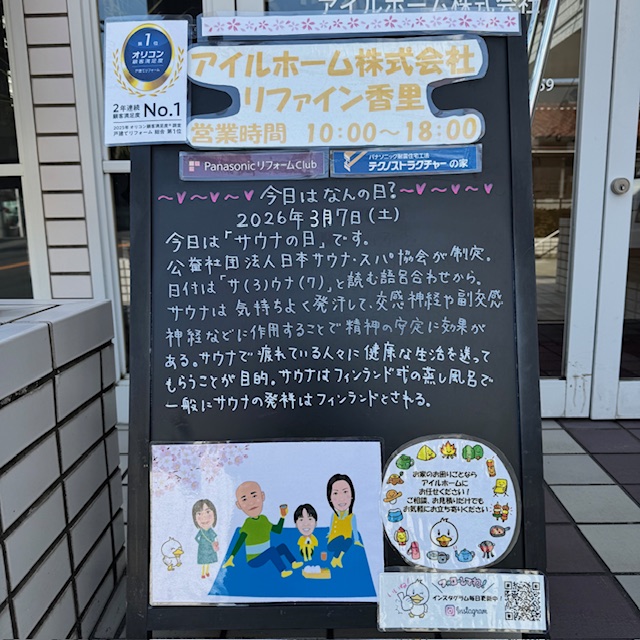 アイルホーム株式会社
第1位
オリコン
顧客満足度
戸建てリフォーム
2年連続
顧客満足度
No.1
2025年 オリコン顧客満足度®調査
戸建てリフォーム 総合 第1位
アイルホーム株式会社
リファイン香里
営業時間 10:00〜18:00
Panasonic リフォーム Club
パナソニック耐震住宅工法
テクノストラクチャーの家
59
〜♥〜♥〜♥今日はなんの日?〜♥〜♥〜♥
2026年3月7日(土)
今日は「サウナの日」です。
公益社団法人日本サウナ・スパ協会が制定。
日付は「サ(3)ウナ(7)」と読む語呂合わせから。
サウナは気持ちよく発汗して、交感神経や副交感
神経などに作用することで精神の安定に効果が
ある。サウナで疲れている人々に健康な生活を送って
もらうことが目的。サウナはフィンランド式の蒸し風呂で
一般にサウナの発祥はフィンランドとされる。
お家のお困りごとなら
アイルホームに
お任せください!
ご相談、お見積りだけでも
お気軽にお立ち寄りください!
フォローしてね!
インスタグラム毎日更新中!
Instagram